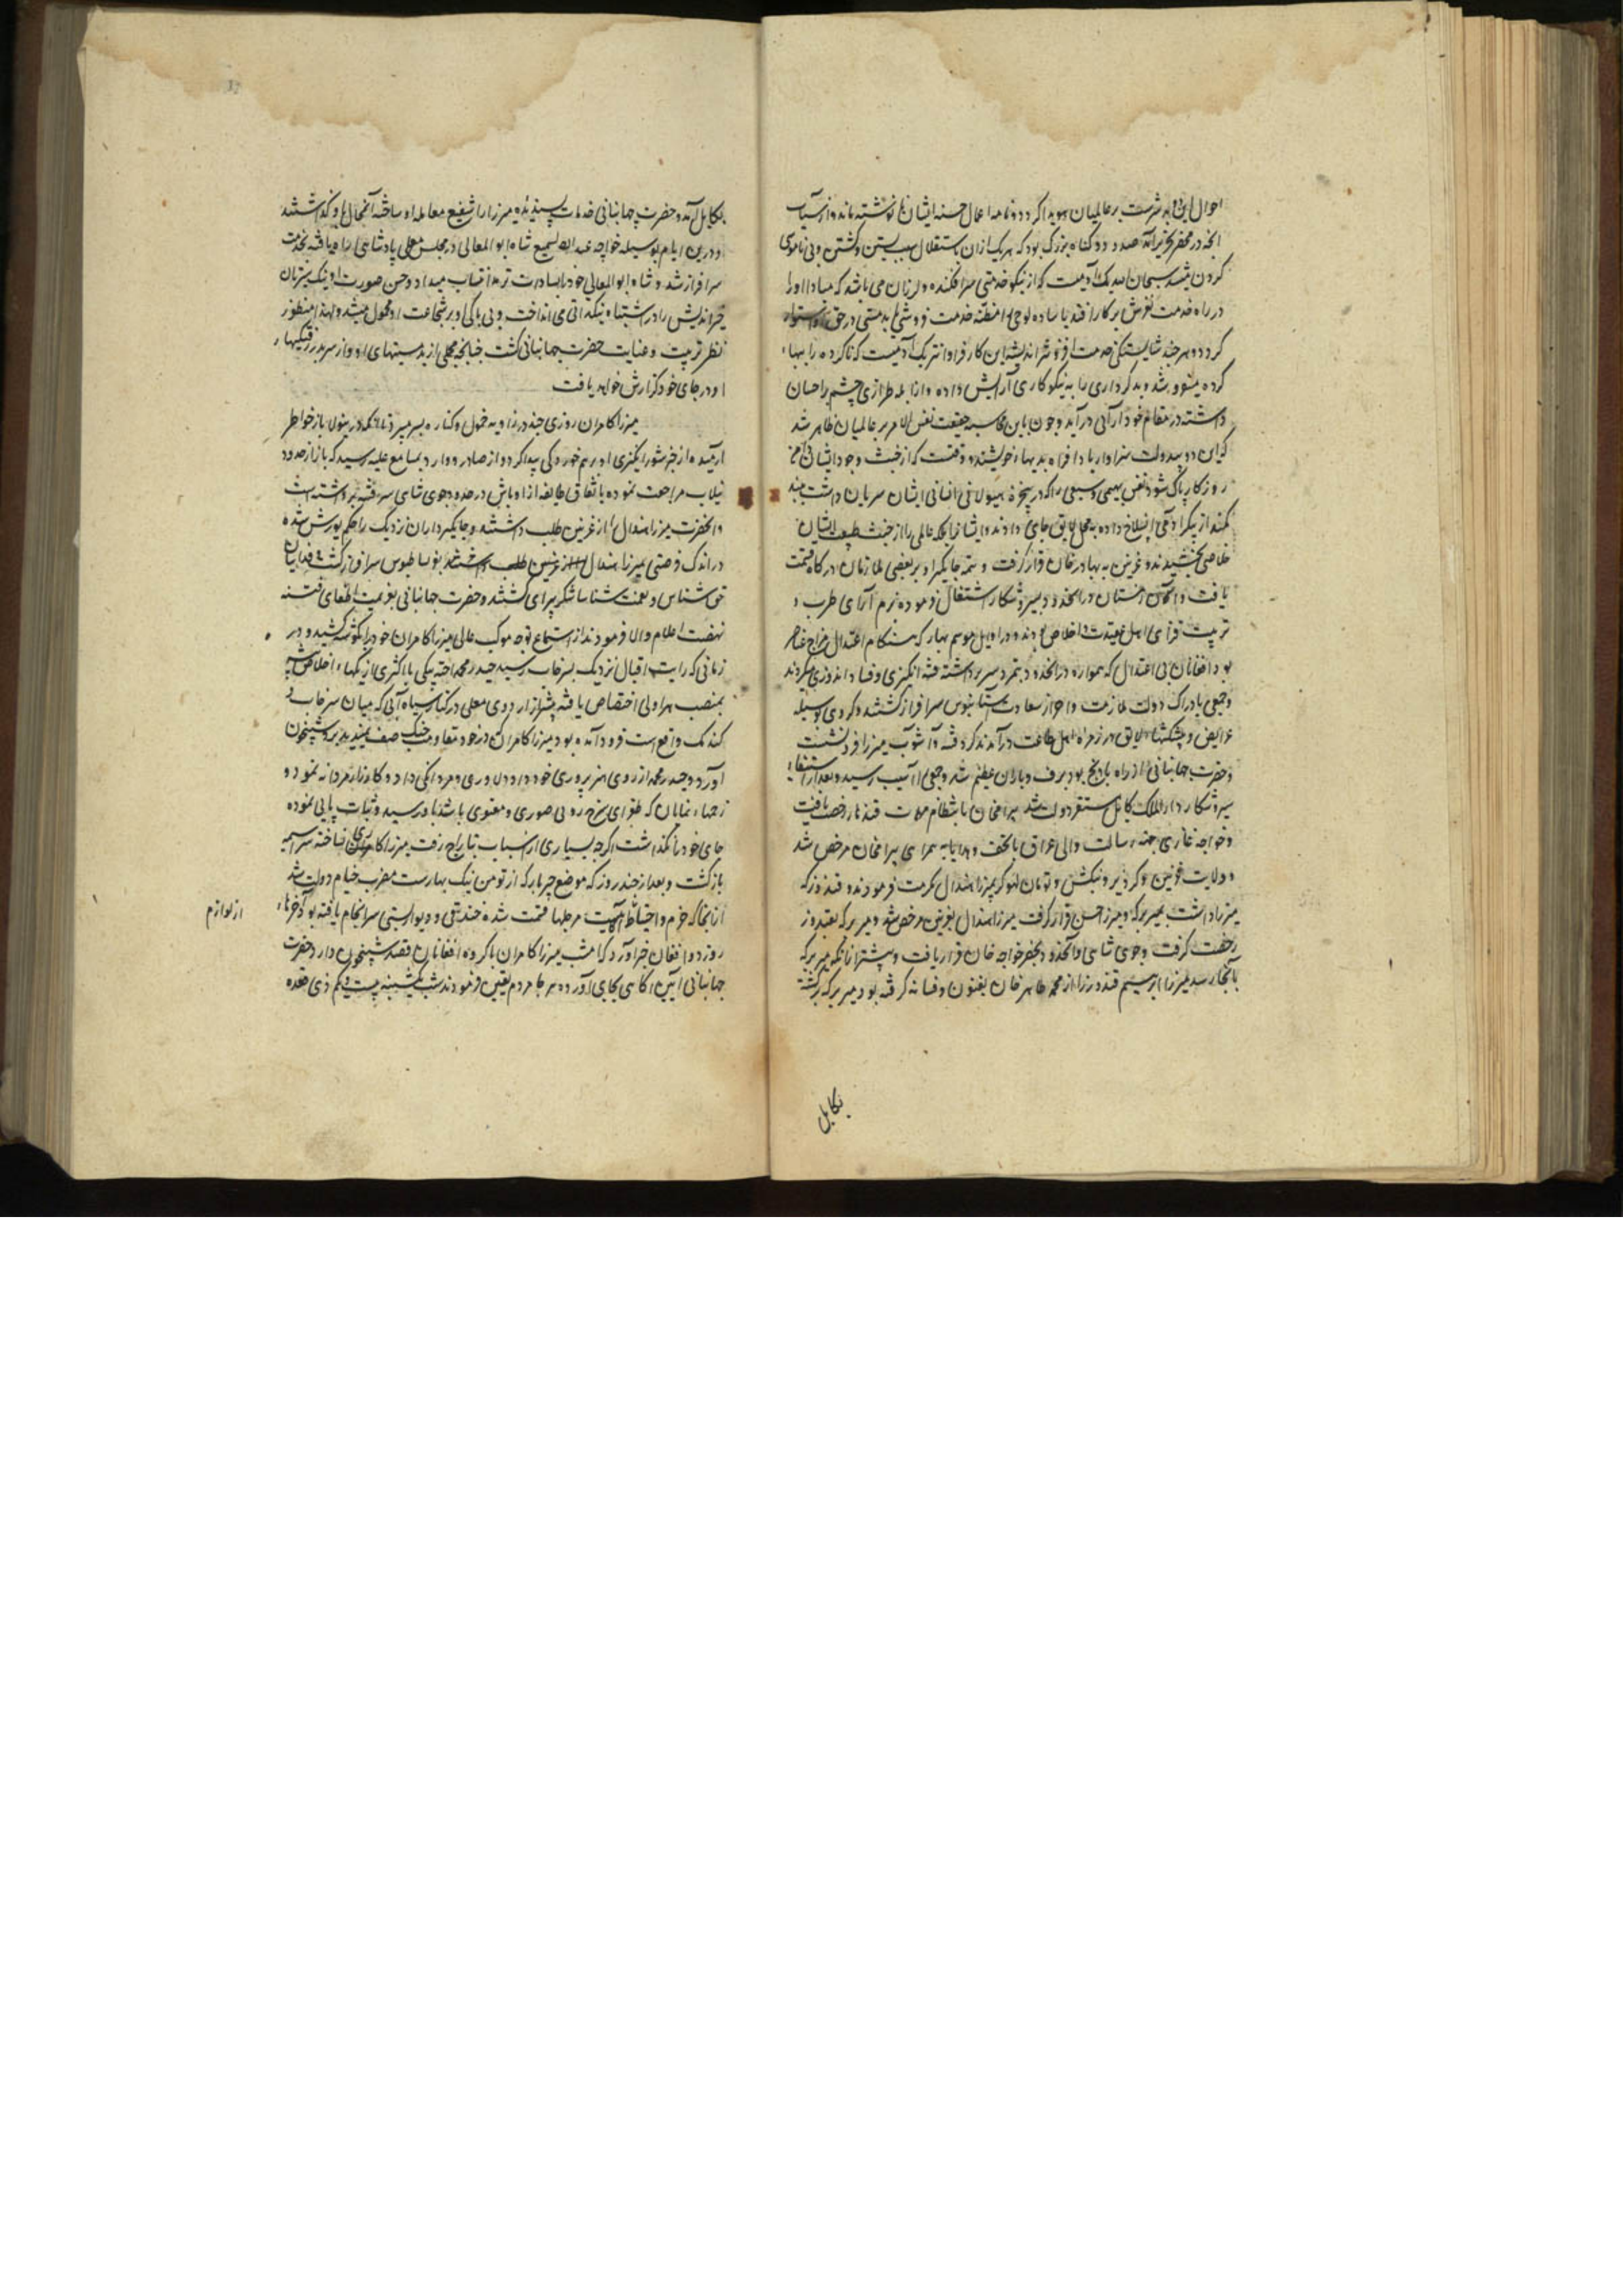 احوال این
بر عالمیان هویدا گردد و نامه اعمال حسنه ایشان نوشته ماند و از سیآت
انچه در محضر بتحریر آمد صد و دو گناه بزرگ بود که هر یک از ان باستقلال سبب بستن و کشتن و بی ناموسی
کردن میشد سبحان الله یک آدمیست که از نیکو خدمتی سرافکنده و لرزان می باشد که مبادا او را
در راه خدمت لغزش بر کار افتد یا ساده لوحی را مظنه خدمت فروشی یا بدمستی در حق او استوار
گردد و هر چند شایستگی خدمت افزونتر اندیشه این کار فراوانتر یک آدمیست که ناکرده را بهاء
کرده میفروشد و بدکرداری را به نیکوکاری آرایش داده و از ابله طرازی چشم احسان
داشته در مقام خود آرائی در آید و چون باین محاسبه حقیقت نفس الامر بر عالمیان ظاهر شد
که این دو بیدولت سزاوار بادافراه بدیهاء خویشند و وقتست که از خبث وجود ایشان
روزگار پاک شود نفس بهیمی و سبعی را که در پیغوله هیولانی انسانی ایشان سریان داشت
کمند از پیکر آدمی انسلاخ داده به محل لایق جای دادند و ایشانرا بلکه عالمی را از خبث طبیعت ایشان
خلاصی بخشیدند و غزنین به بهادر خان قرار گرفت و تتمه جایگیر او بر بعضی ملازمان درگاه قسمت
یافت و زمستان در انحدود بسیر و شکار اشتغال فرموده بزم آرای طرب و
تربیت فزای اهل عقیدت و اخلاص بودند و در اوایل موسم بهار که هنگام اعتدال مزاج عناصر
بود افغانان بی اعتدال که همواره در انحدود بتمرد سر برداشته فتنه انگیزی و فساد اندوزی میکردند
و جمعی بادراک دولت ملازمت و احراز سعادت آستانبوس سرافراز گشتند و گروهی بوسیله
عرایض و پیشکشهاء لایق در زمره اهل طاعت در آمدند گرد فتنه و آشوب میرزا فرو نشست
و حضرت جهانبانی از راه بادپج بود برف و باران عظیم شد و جمعی را آسیب رسید و بعد از استیفاء
سیر و شکار دار الملک کابل مستقر دولت شد بیرامخان بانتظام مهمات قندهار رخصت یافت
و خواجه غازی بجهة رسالت والی عراق با تحف و هدایا به همراهی بیرامخان مرخص شد
و ولایت غزنین و گردیز و بنگش و تومان لهوگر بمیرزا هندال مکرمت فرمودند و قندوز که
میرزا داشت بمیر برکه و میرزا حسن قرار گرفت میرزا هندال بغزنین مرخص شد و میر برکه بقندوز
رخصت گرفت و جوی شاهی و آنحدود بخضر خواجه خان قرار یافت و پیشتر از آنکه میر برکه
بآنجا رسد میرزا ابراهیم قندوز را از محمد طاهر خان بفنون و فسانه گرفته بود میر برکه برگشته
بکابل
بکابل آمد و حضرت جهانبانی خدمات پسندیده میرزا را شفیع معامله او ساخته آنمحال باو گذاشتند
و درین ایام بوسیله خواجه عبد السمیع شاه ابو المعالی در مجلس معلی پادشاهی راه یافته بخدمت
سرافراز شد و شاه ابو المعالی خود را بسادات ترمذ انتساب میداد و حسن صورت او نیک سیرتان
خیراندیش را در اشتباه نیکذاتی می انداخت و بی باکی او بر شجاعت او محمول میشد و لهذا منظور
نظر تربیت و عنایت حضرت جهانبانی گشت چنانچه مجملی از بدمستیهای او و از سر بدر رفتگیهاء
او در جای خود گزارش خواهد یافت
میرزا کامران روزی چند در زاویه خمول و کناره بسر میبرد تا آنکه درینولا باز خواطر
آرمیده از خبر شورانگیزی او بر هم خوردگی پیدا کرد و از صادر و وارد بمسامع علیه رسید که باز از حدود
نیلاب مراجعت نموده باتفاق طایفه از اوباش در حدود جوی شاهی سر فتنه برداشته است
و انحضرت میرزا هندال را از غزنین طلب داشتند و جایگیرداران نزدیک را حکم یورش شده
در اندک فرصتی میرزا هندال از غزنین طلب داشتند بزمین بوس سرافراز گشت و فداییان
حق شناس و نعمت شناسا شکرپیرای گشتند و حضرت جهانبانی بعزیمت اطفای فتنه
نهضت اعلام والا فرمودند از استماع توجه موکب عالی میرزا کامران خود را بگوشه کشید و در
زمانی که رایت اقبال نزدیک بسرخاب رسید حیدر محمد اخته بیگی با اکثری از یکهاء اخلاص پیشه
بمنصب هراولی اختصاص یافته پیشتر از اردوی معلی در کنار سیاه آبی که میان سرخاب و
گندمک واقعست فرود آمده بود میرزا کامران که درخود مقاومت جنگ صف نمیدید بر و شبیخون
آورد و حیدر محمد از روی هنرپروری خود داد دلاوری و مردانگی داد و کارزار مردانه نموده
زخمهاء نمایان که طغرای سرخ روئی صوری و معنوی باشد باو رسید و ثبات پایی نموده
جای خود را نگذاشت اگرچه بسیاری از اسباب بتاراج رفت میرزا کامران کاری نساخته سراسیمه
بازگشت و بعد از چند روز که موضع چپریار که از تومان نیک نهارست مضرب خیام دولت شد
از آنجا که حزم و احتیاط آگهیست مرحلها قسمت شده خندقی و دیوار بستی سرانجام یافته بود آخرهاء
از لوازم
روز دو افغان خبر آورد که امشب میرزا کامران با گروه افغانان قصد شبیخون دارد حضرت
جهانبانی آیین آگاهی بجای آورده هر جا مردم تعین فرمودند شب یکشنبه بیست و یکم ذی قعده